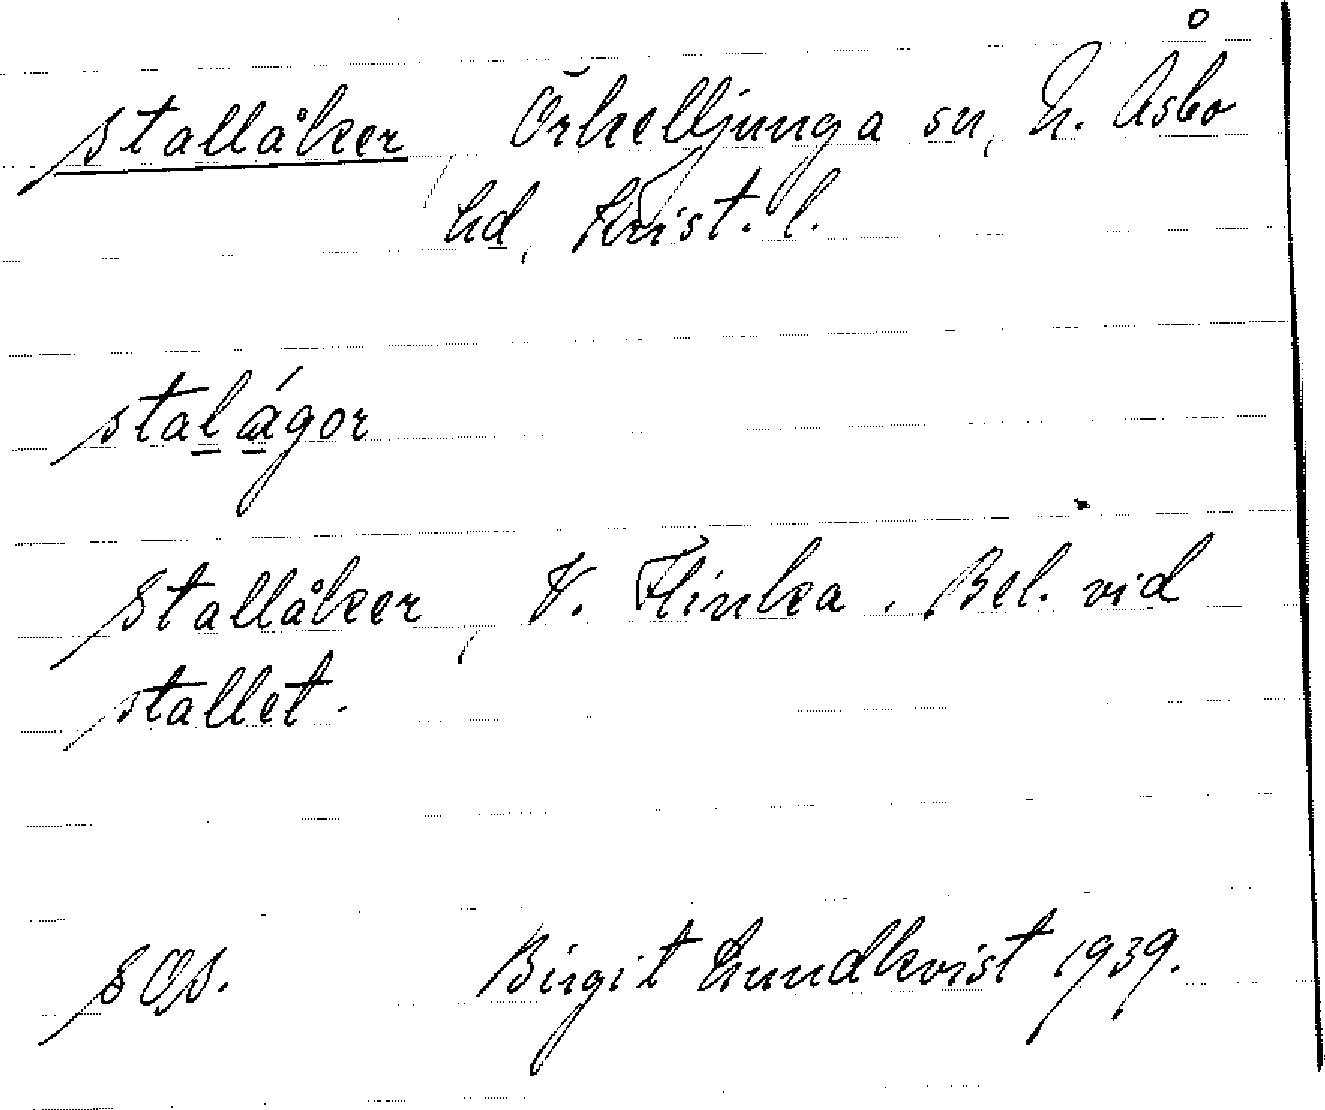 Stallåker, Örkelljunga sn, N. Åsbo
hd, Krist. l.
stalágor
Stallåker, V. Flinka. Bel. vid
stallet.
Birgit Lundkvist 1939.